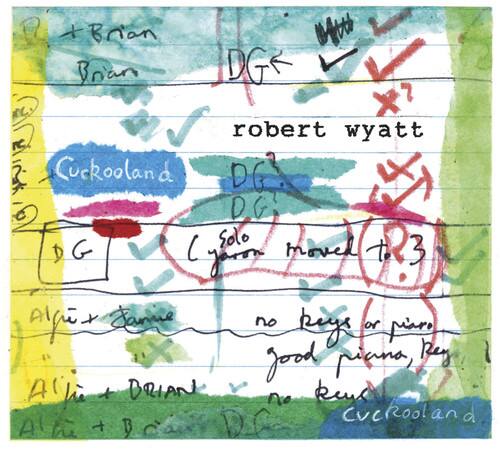 + Brian
Brian DG ←
X?
robert wyatt
Cuckooland
DG?
DG?
DG ( solo
yaron moved to 3 ?
Alfie + Jamie no keys or piano
" good piano, key
Alfie + BRIAN no keys
cuckooland
Alfie + Brian DG